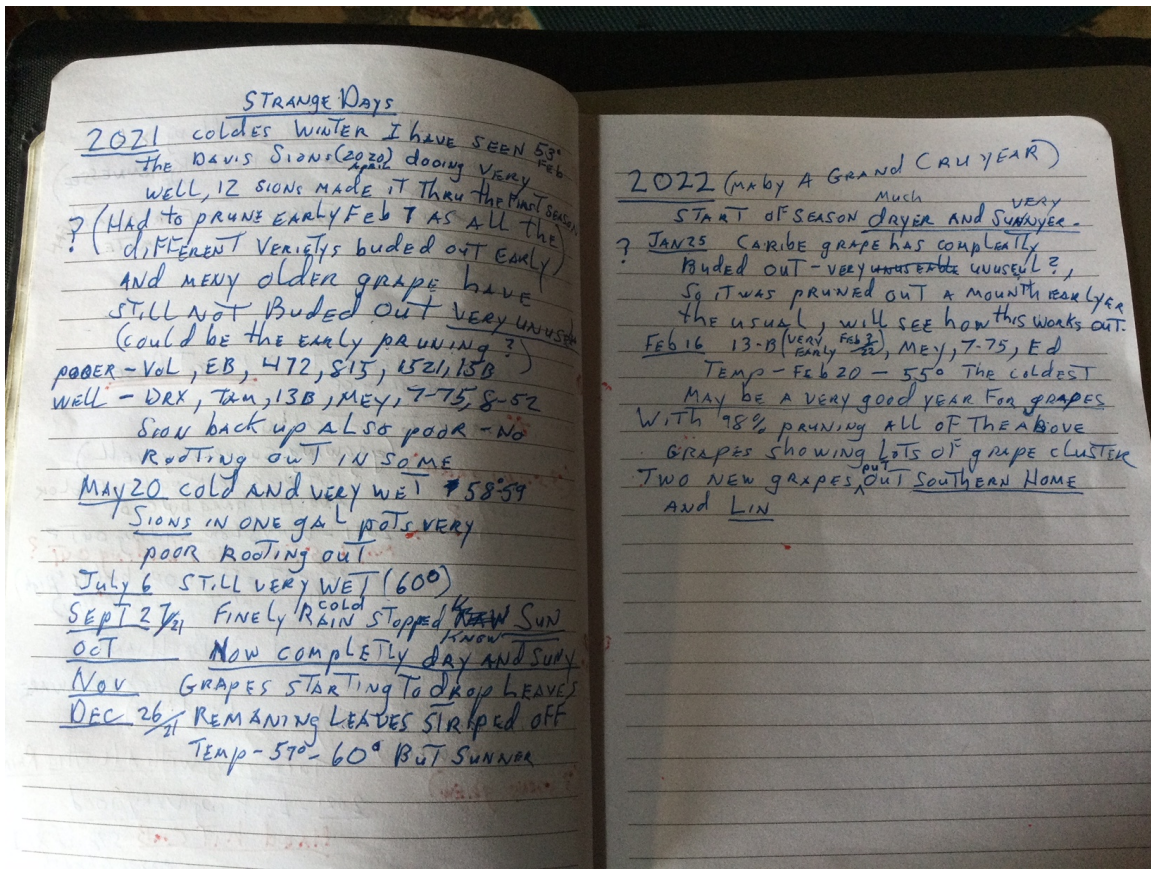 STRANGE DAYS
2021 COLDES WINTER I HAVE SEEN 53° FEB
THE DAVIS SIONS (2020) DOOING VERY
APRIL
WELL, 12 SIONS MADE IT THRU THE FIRST SEASON
? (HAD TO PRUNE EARLY FEB 7 AS ALL THE
DIFFERENT VERIETYS BUDED OUT EARLY)
AND MENY OLDER GRAPE HAVE
STILL NOT BUDED OUT VERY UNUSEL
(COULD BE THE EARLY PRUNING?)
POOER - VOL, EB, 472, 815, 1521, 15B
WELL - DRX, TAM, 13B, MEY, 7-75, 8-52
SION BACK UP ALSO POOR - NO
ROOTING OUT IN SOME
MAY 20 COLD AND VERY WET 58-59
SIONS IN ONE GAL POTS VERY
POOR ROOTING OUT
JULY 6 STILL VERY WET (60°)
SEPT 27/21 FINELY COLD RAIN STOPPED SUN
KNOW
OCT NOW COMPLETLY DRY AND SUNY
NOV GRAPES STARTING TO DROP LEAVES
DEC 26/21 REMANING LEAVES STRIPED OFF
TEMP - 57° - 60° BUT SUNNER
2022 (MABY A GRAND CRU YEAR)
START OF SEASON MUCH DRYER AND VERY SUNNYER.
? JAN 25 CARIBE GRAPE HAS COMPLEATLY
BUDED OUT - VERY UNUSEUL?,
SO IT WAS PRUNED OUT A MOUNTH EARLYER
THE USUAL, WILL SEE HOW THIS WORKS OUT.
FEB 16 13-B (VERY EARLY FEB 3/22), MEY, 7-75, ED
TEMP - FEB 20 - 55° THE COLDEST
MAY BE A VERY GOOD YEAR FOR GRAPES
WITH 98% PRUNING ALL OF THE ABOVE
GRAPES SHOWING LOTS OF GRAPE CLUSTER
TWO NEW GRAPES PUT OUT SOUTHERN HOME
AND LIN